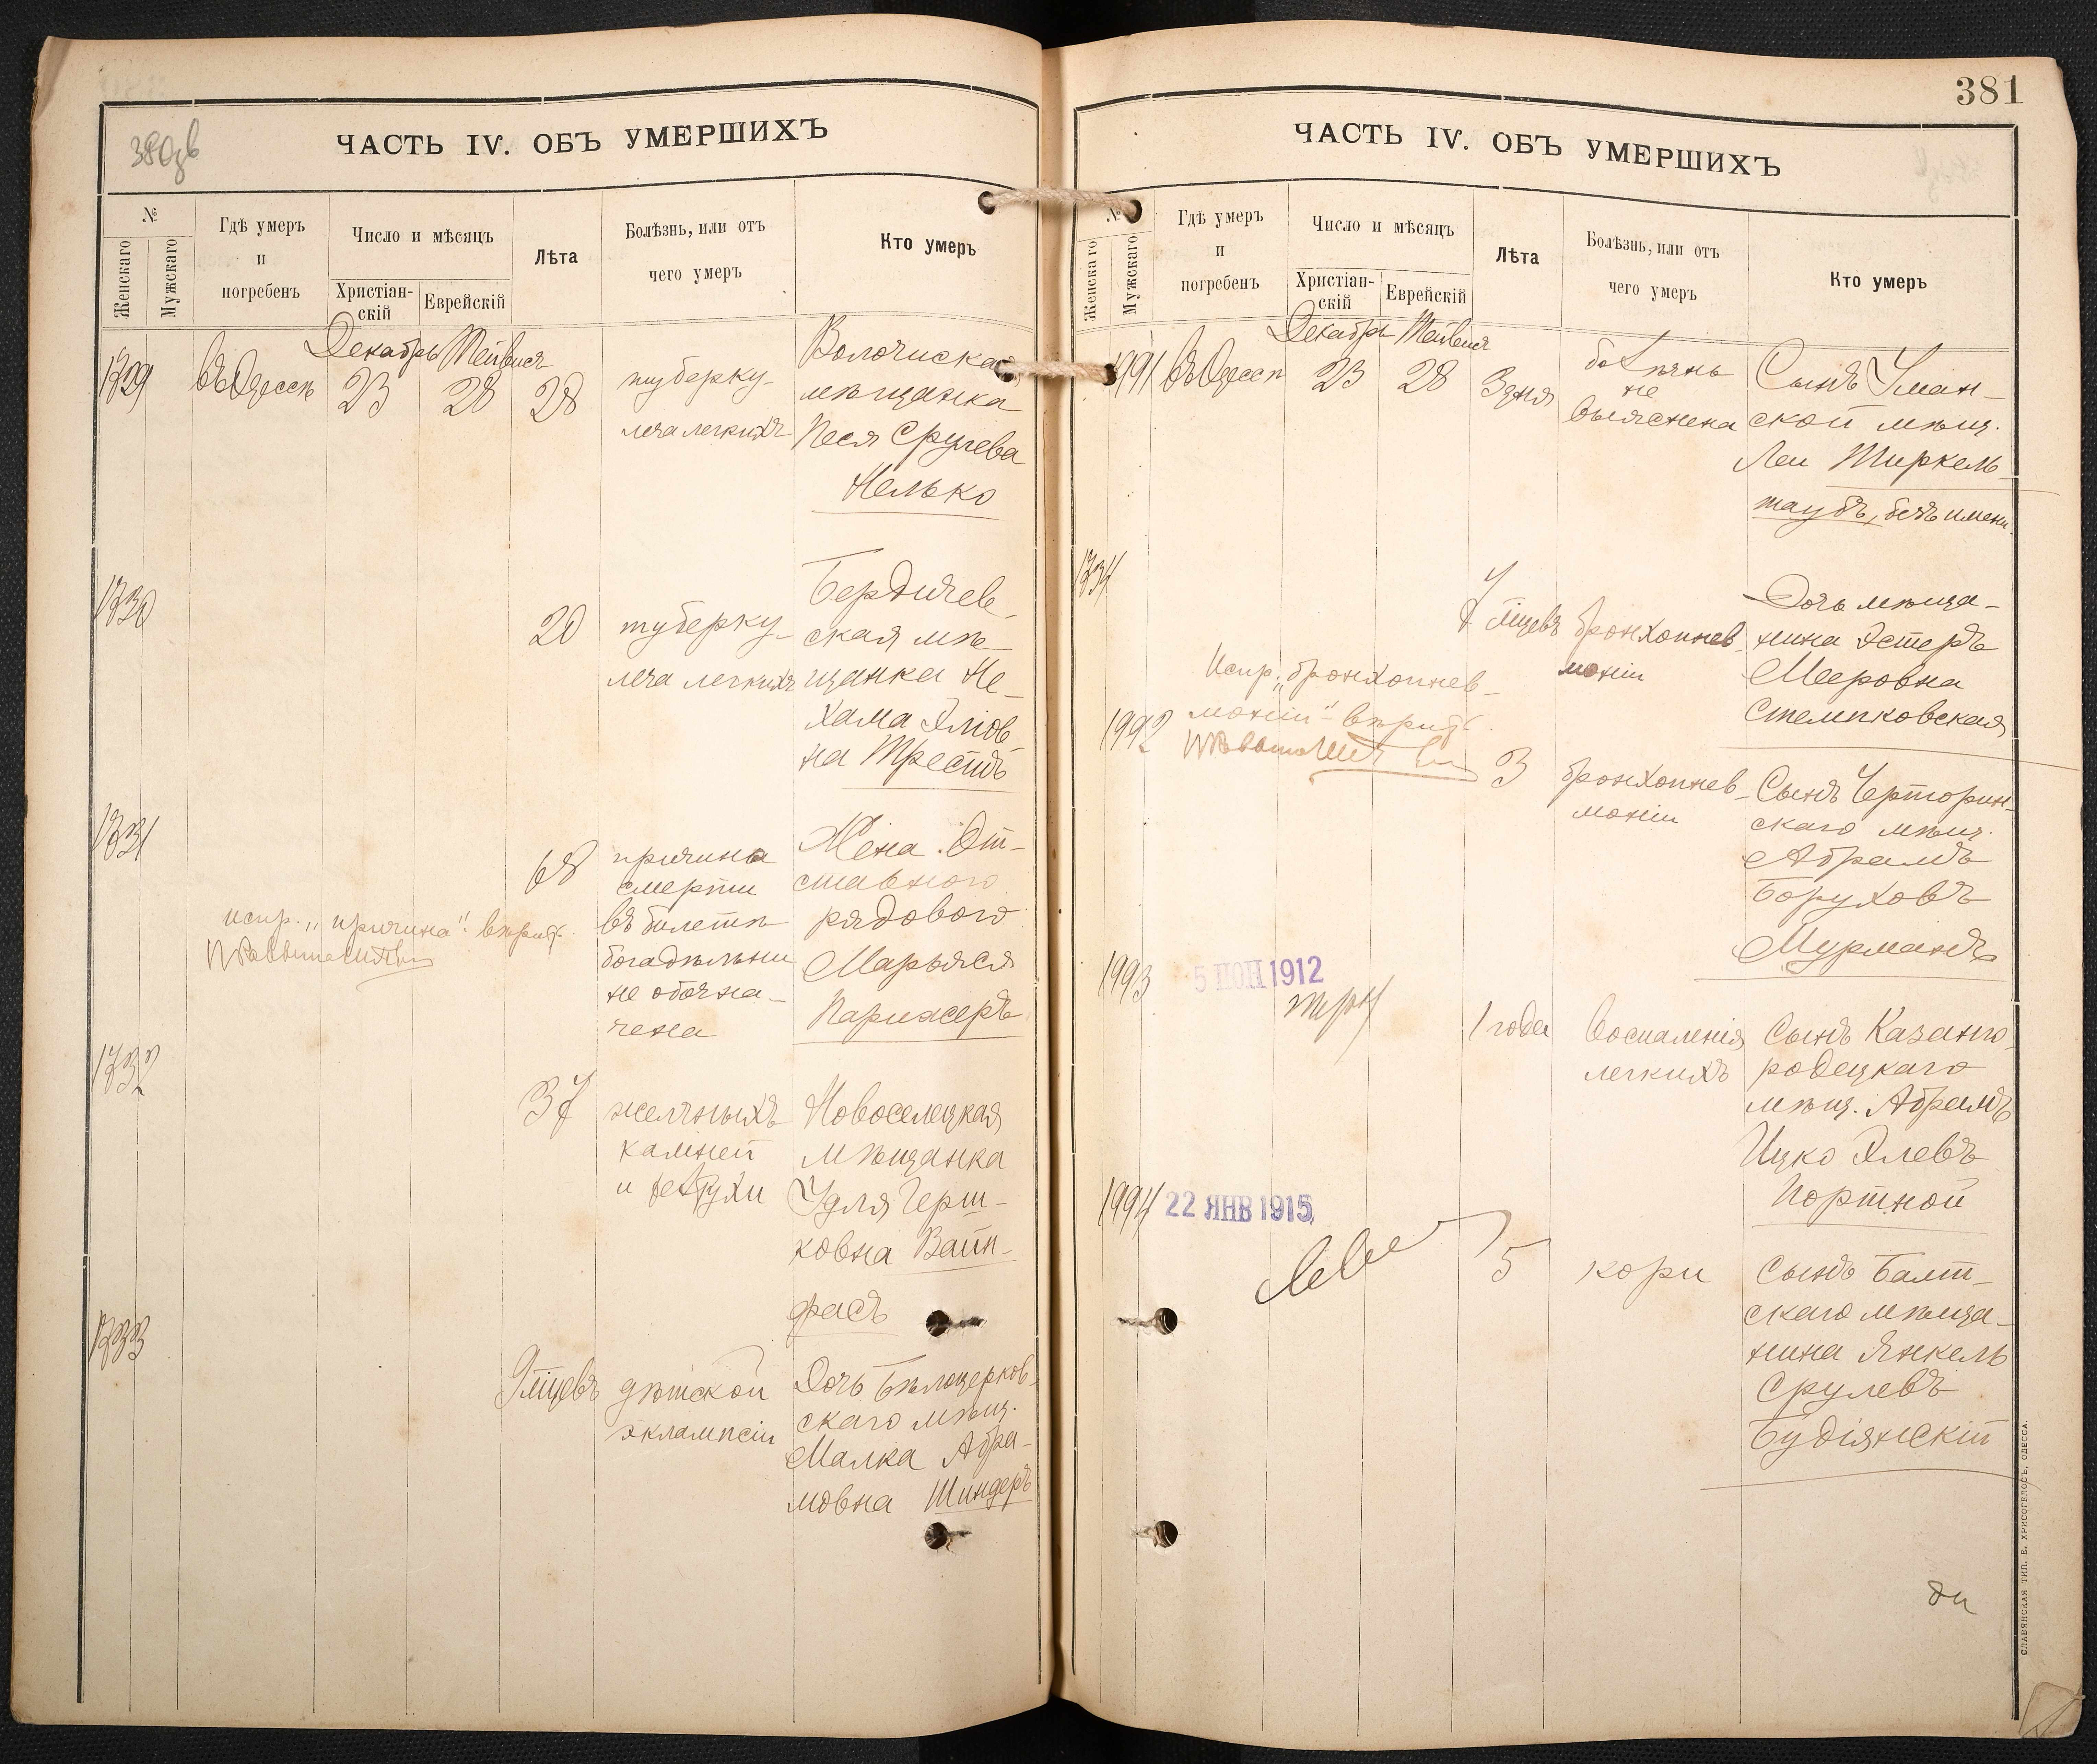 380 зв
ЧАСТЬ IV. ОБЪ УМЕРШИХЪ
№
Женскаго
Мужскаго
Гдѣ умеръ
и
погребенъ
Число и мѣсяцъ
Христіан-
скій
Еврейскій
Лѣта
Болѣзнь, или отъ
чего умеръ
Кто умеръ
Декабрь
1729 въ Одессѣ 23 28 28
туберку-
леза легкихъ
Волочиская
мѣщанка
Песя Срулева
Нелько
1730
20
туберку-
леза легкихъ
Бердичев-
ская мѣ-
щанка Не-
хама Эліов
на Трестъ
1731
68
причина
смерти
въ билетѣ
богадѣльни
не обозна-
чена
Жена От-
ставного
рядового
Марьяся
Парижеръ
испр. „причина"
1732
37
желчныхъ
камней
и
Новоселецкая
мѣщанка
Удля Герш-
ковна Вайн-
расъ
1733
9 мѣцевъ
дѣтской
эклампсіи
Дочь Бѣлоцерков-
скаго мѣщ.
Малка Абра-
мовна Шиндеръ
381
ЧАСТЬ IV. ОБЪ УМЕРШИХЪ
№
Женскаго
Мужскаго
Гдѣ умеръ
и
погребенъ
Число и мѣсяцъ
Христіан-
скій
Еврейскій
Лѣта
Болѣзнь, или отъ
чего умеръ
Кто умеръ
Декабрь
1991 въ Одессѣ 23 28 3 дня
болѣзнь
не
выяснена
Сынъ Уман-
ской мѣщ.
Леи Тиркель-
таубъ, безъ имени
1734
7 мѣцевъ
бронхопнев-
моніи
Дочь мѣща-
нина Эстеръ
Мееровна
Стемпковская
Испр. „бронхопнев-
моніи"
1992
3
бронхопнев-
моніи
Сынъ Черторин-
скаго мѣщ.
Абрамъ
Боруховъ
Мурманъ
1993
5 ІЮН 1912
1 года
воспаленія
легкихъ
Сынъ Казанго-
родецкаго
мѣщ. Абрамъ
Ицко Элевъ
Портной
1994
22 ЯНВ 1915
5
кори
Сынъ Балт-
скаго мѣща-
нина Янкель
Срулевъ
Будіянскій
СЛАВЯНСКАЯ ТИП. Е. ХРИСОГЕЛОСЪ, ОДЕССА.